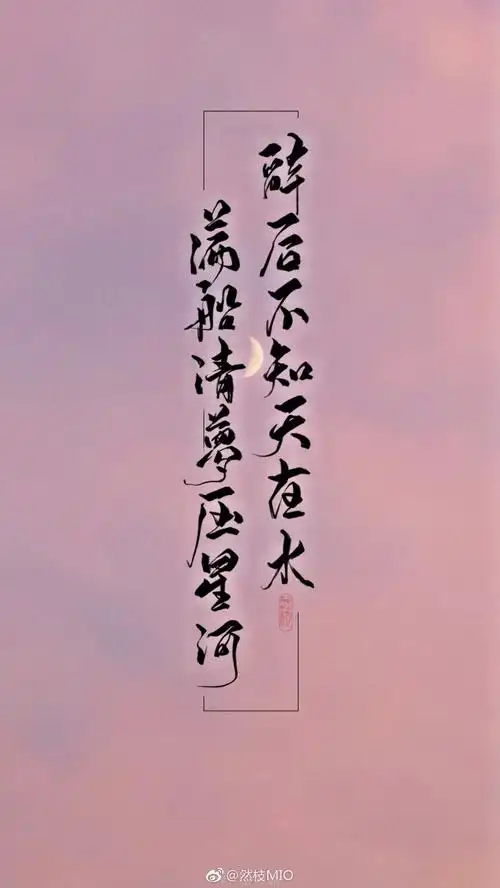 醉后不知天在水
满船清夢压星河
@然枝MIO